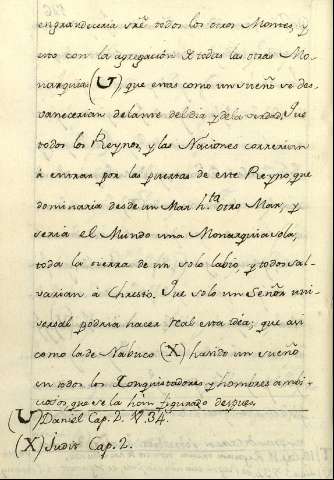 engrandeceria sre todos los otros Montes, y
esto con la agregación de todas las otras Mo-
narquias (U) que estas como un sueño se des-
vanecerian delante del dia y de la verdad. Que
todos los Reynos, y las Naciones correrian
á entrar por las puertas de este Reyno, que
dominaria desde un Mar hta otro Mar, y
seria el Mundo una Monarquia sola,
toda la tierra de un solo labio, y todos sal-
varian á Christo. Que solo un Señor uni-
versal podria hacer real esta idea; que asi
como la de Nabuco (X) havido un sueño
en todos los Conquistadores y hombres ambi-
ciosos que se la han figurado despues.
(U) Daniel Cap. 2. V. 34.
(X) Judit Cap. 2.